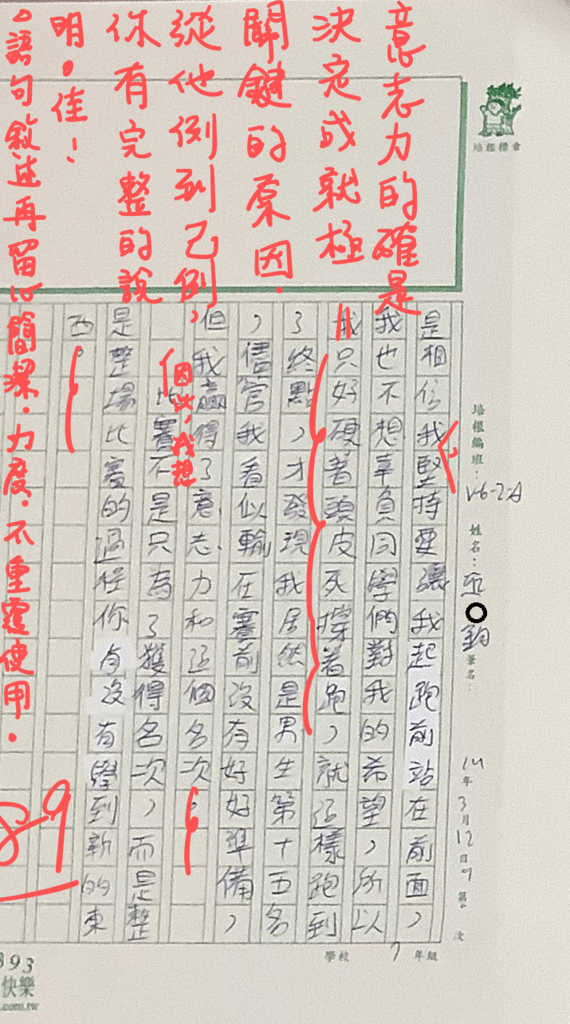 意志力的確是
決定成就極
關鍵的原因.
從他例到己例,
你有完整的說
明.佳!
。語句敘述再留心簡潔.力度.不重覆使用.
培根標章
培根編班:V-6-2-A
姓名:
筆名:
114年3月12日 第 次
是相信我堅持要讓我起跑前站在前面,
我也不想辜負同學們對我的希望,所以
我只好硬著頭皮死撐着跑,就這樣跑到
了終點,才發現我居然是男生第十五名
,儘管我看似輸在賽前沒有好好準備,
但我贏得了意志力和這個名次,
因此,我想
比賽不是只為了獲得名次,而是整
是整場比賽的過程你有沒有學到新的東
西。
89
學校 7 年級
893
快樂
.com.tw